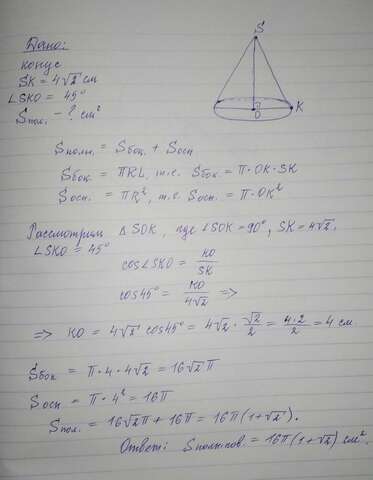 Дано:
конус
SK = 4√2 см
∠SKO = 45°
Sпол. - ? см²
S
O
K
Sполн. = Sбок. + Sосн.
Sбок. = πRL, т.е. Sбок. = π · OK · SK
Sосн. = πR², т.е. Sосн. = π · OK²
Рассмотрим △SOK, где ∠SOK = 90°, SK = 4√2,
∠SKO = 45°
cos∠SKO = KO/SK
cos45° = KO/4√2 =>
=> KO = 4√2 · cos45° = 4√2 · √2/2 = 4·2/2 = 4 см.
Sбок = π · 4 · 4√2 = 16√2 π
Sосн = π · 4² = 16π
Sпол. = 16√2π + 16π = 16π(1+√2).
Ответ: Sполн.пов. = 16π(1+√2) см².